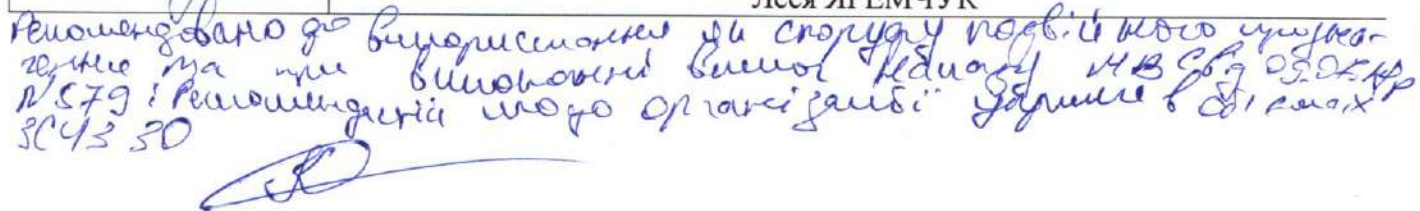 Леся ЯРЕМЧУК
Рекомендовано до використання як споруду подвійного призна-
чення та при виконанні вимог Наказу МВС від
№579 і Рекомендацій щодо організації укриття в об'єктах
ЗСУЗ ЗО